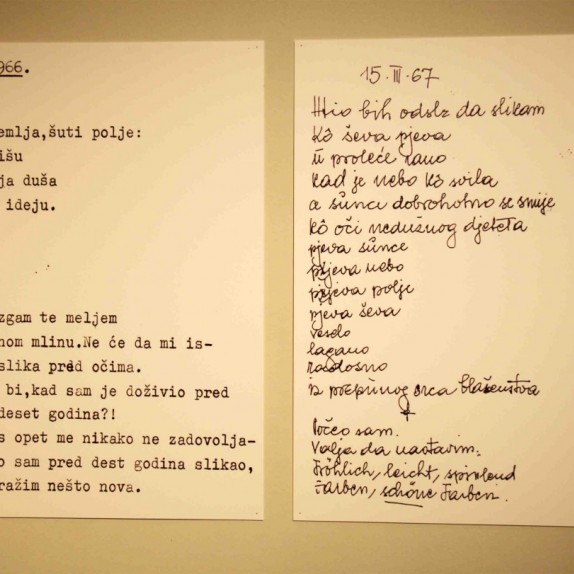 966.
emlja,šuti polje:
išu
ja duša
ideju.
zgam te meljem
nom mlinu.Ne će da mi is-
slika pred očima.
bi,kad sam je doživio pred
deset godina?!
s opet me nikako ne zadovolja-
o sam pred dest godina slikao,
ražim nešto nova.
15. III. 67
Htio bih odslz da slikam
kô ševa pjeva
u proleće rano
kad je nebo kô svila
a sunce dobrohotno se smije
kô oči nedužnog djeteta
pjeva sunce
pjeva nebo
pjeva polje
pjeva ševa
veselo
lagano
radosno
iz prepunog srca blaženstva
Počeo sam.
Valja da nastavim:
Fröhlich, leicht, spielend
Farben, schöne Farben.